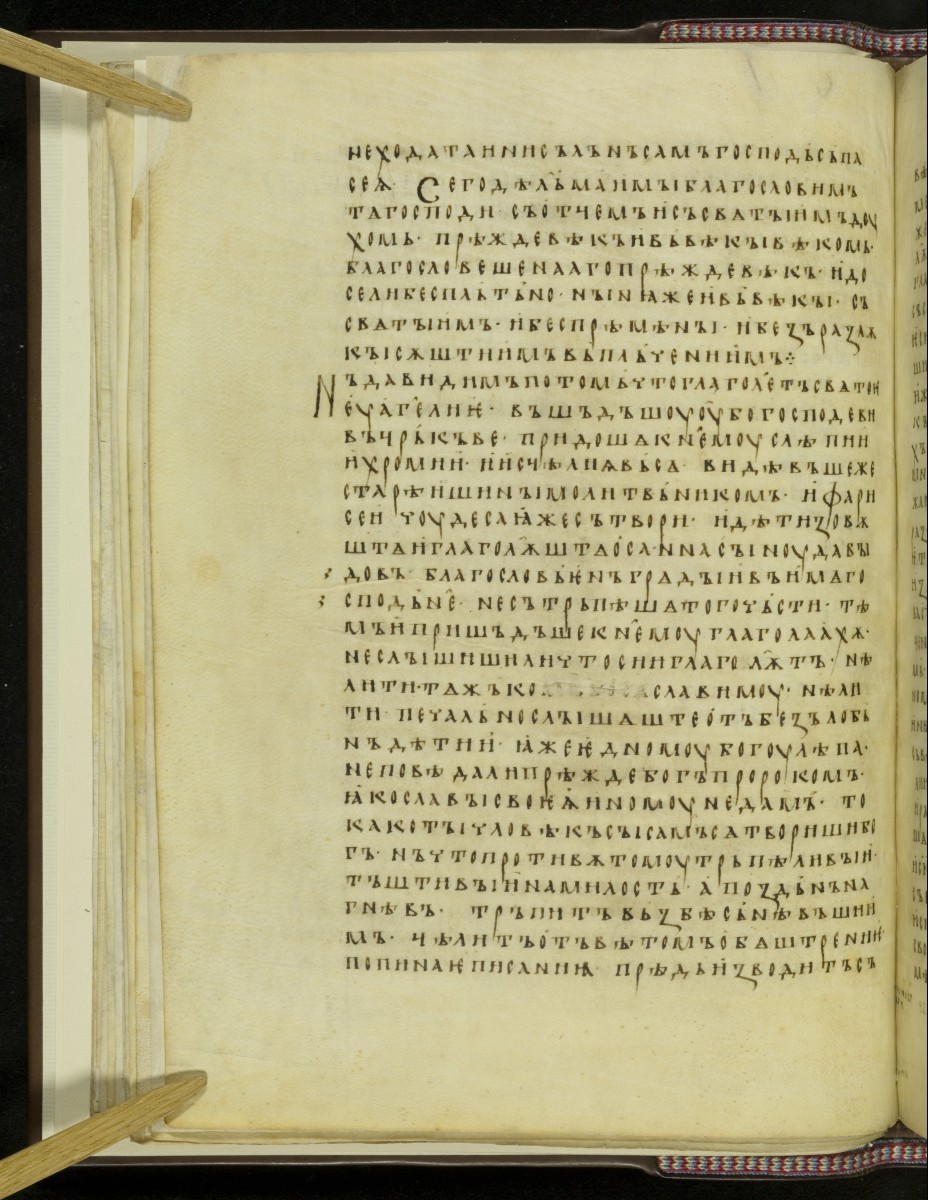 не ходатаи ни сълъ нъ самъ господь съпа
сеѩ҄· Сего дѣл҄ьма и мꙑ благословимъ
тѧ господи· съ отч҄емь и съ свѧтꙑимъ доу
хомь· прѣжде вѣкъ и вь вѣкꙑ вѣкомь·
благословешена аго прѣжде вѣкъ· и до
сели бесплътьно· нꙑнꙗ же и въ вѣкꙑ· съ
свѧтꙑимъ· и беспрѣмѣнꙑ· и без разлѫ
кꙑ сѫштиимъ въплъчениимъ ⁘
Нъ да видимъ по томь чьто глаголетъ свѧтоѥ
еѵаг҄елиѥ· въшьдъшоуоумоу господеви
въ чрькъве· придошѧ к н҄емоу слѣпии
и хромии· и исчѣли ꙗ вьсѧ· видѣвъше же
старѣишинꙑ молитвьникомъ· и фари
сеи чоудеса ꙗже сътвори· и дѣти зовѫ
штѧ и глаголѭштѧ осанна сꙑноу давꙑ
довъ· благословьѥнъ грѧдꙑи въ имѧ го
сподьн҄е· не сътрьпѣшѧ того чьсти· тѣ
мь и пришьдъше к н҄емоу глаголаахѫ·
не слꙑшиши ли чьто сии глагол҄ѭтъ· нѣ
ли ти тѧжько славимоу· нѣ ли
ти печально слꙑшѧште отъ безълоби
нъ дѣтии· ꙗже ѥдиномоу богоу лѣпа·
не повѣда ли прѣжде богъ пророкомъ·
ꙗко славꙑ своѥѩ иномоу не дамъ· то
како тꙑ чловѣкъ сꙑ самъ сѧ твориши бо
гъ· нъ чьто противѫ томоу трьпѣливꙑи·
тъштивꙑи на милость· а поздьнъ на
гнѣвъ· трьпитъ вьзбѣсьнѣвъшии
мъ· чѣлитъ отъвѣтомъ обаштрениѥ·
попинаѥ писаниꙗ прѣдъ изводитъ съ